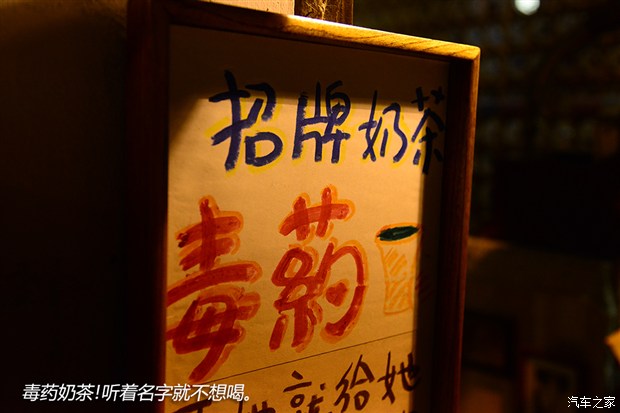 招牌奶茶
毒药
就给她
毒药奶茶!听着名字就不想喝。
汽车之家